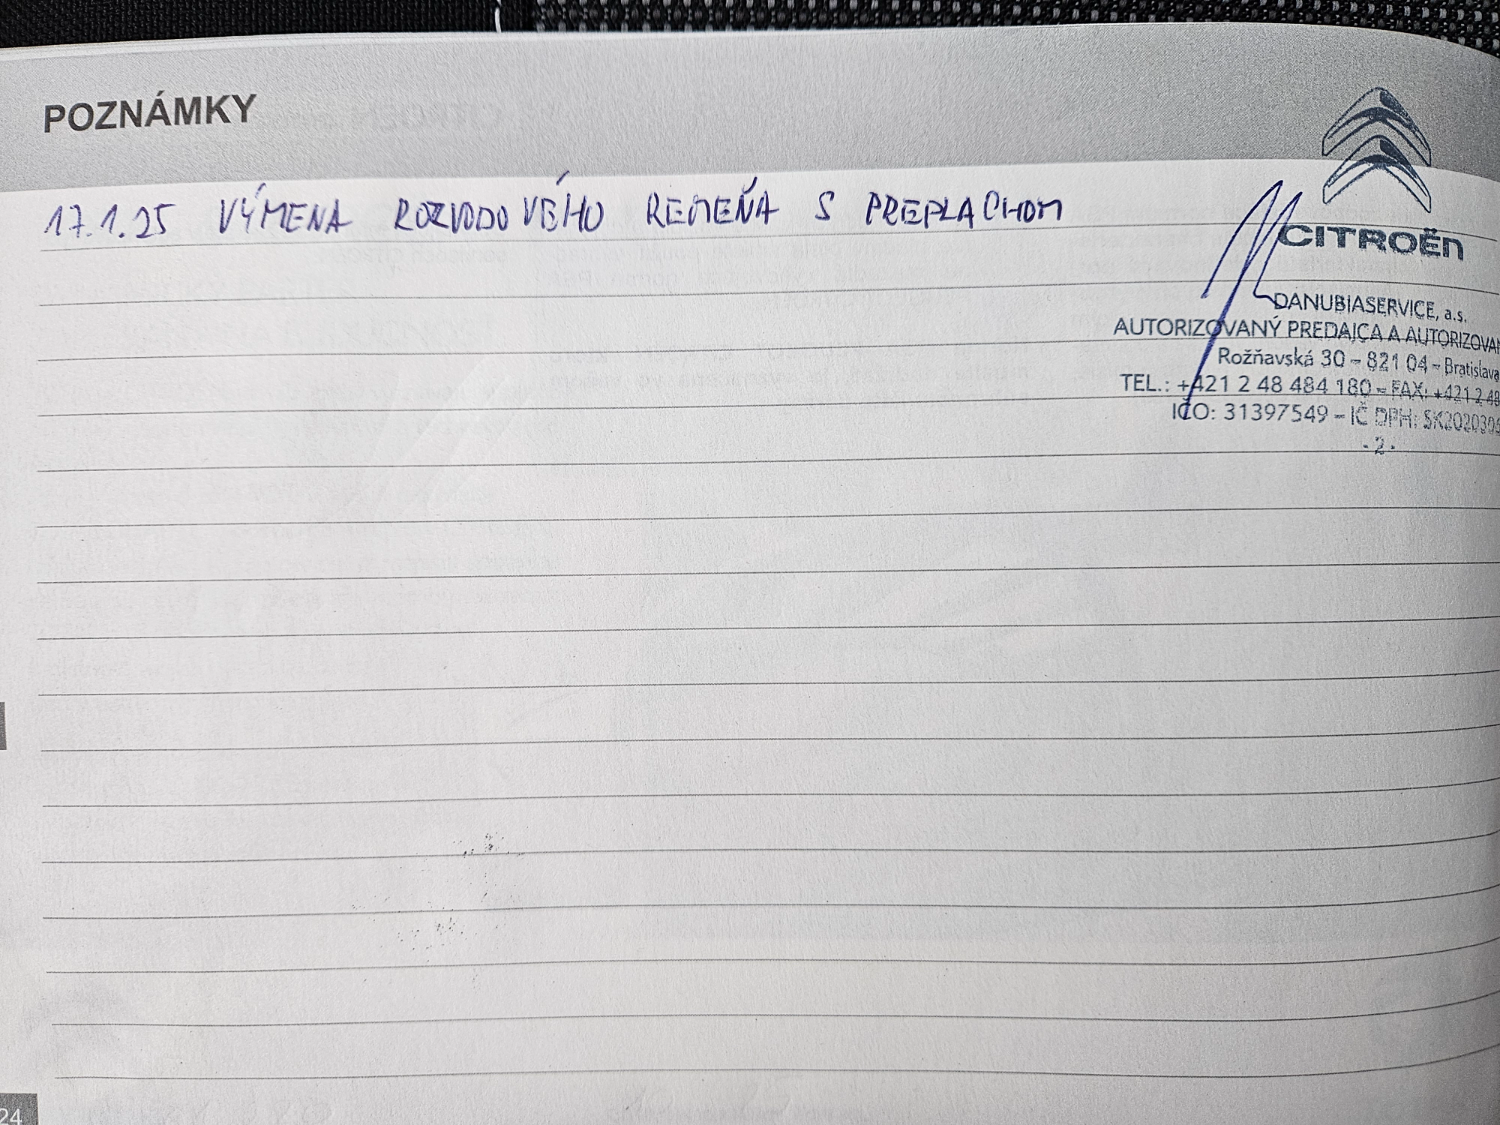 POZNÁMKY
17.1.25 VÝMENA ROZVODOVÉHO REMEŇA S PREPLACHOM
CITROËN
DANUBIASERVICE, a.s.
AUTORIZOVANÝ PREDAJCA A AUTORIZOVA
Rožňavská 30 – 821 04 – Bratislava
TEL.: +421 2 48 484 180 – FAX: +421 2 48
IČO: 31397549 – IČ DPH: SK2020305
- 2 -
24